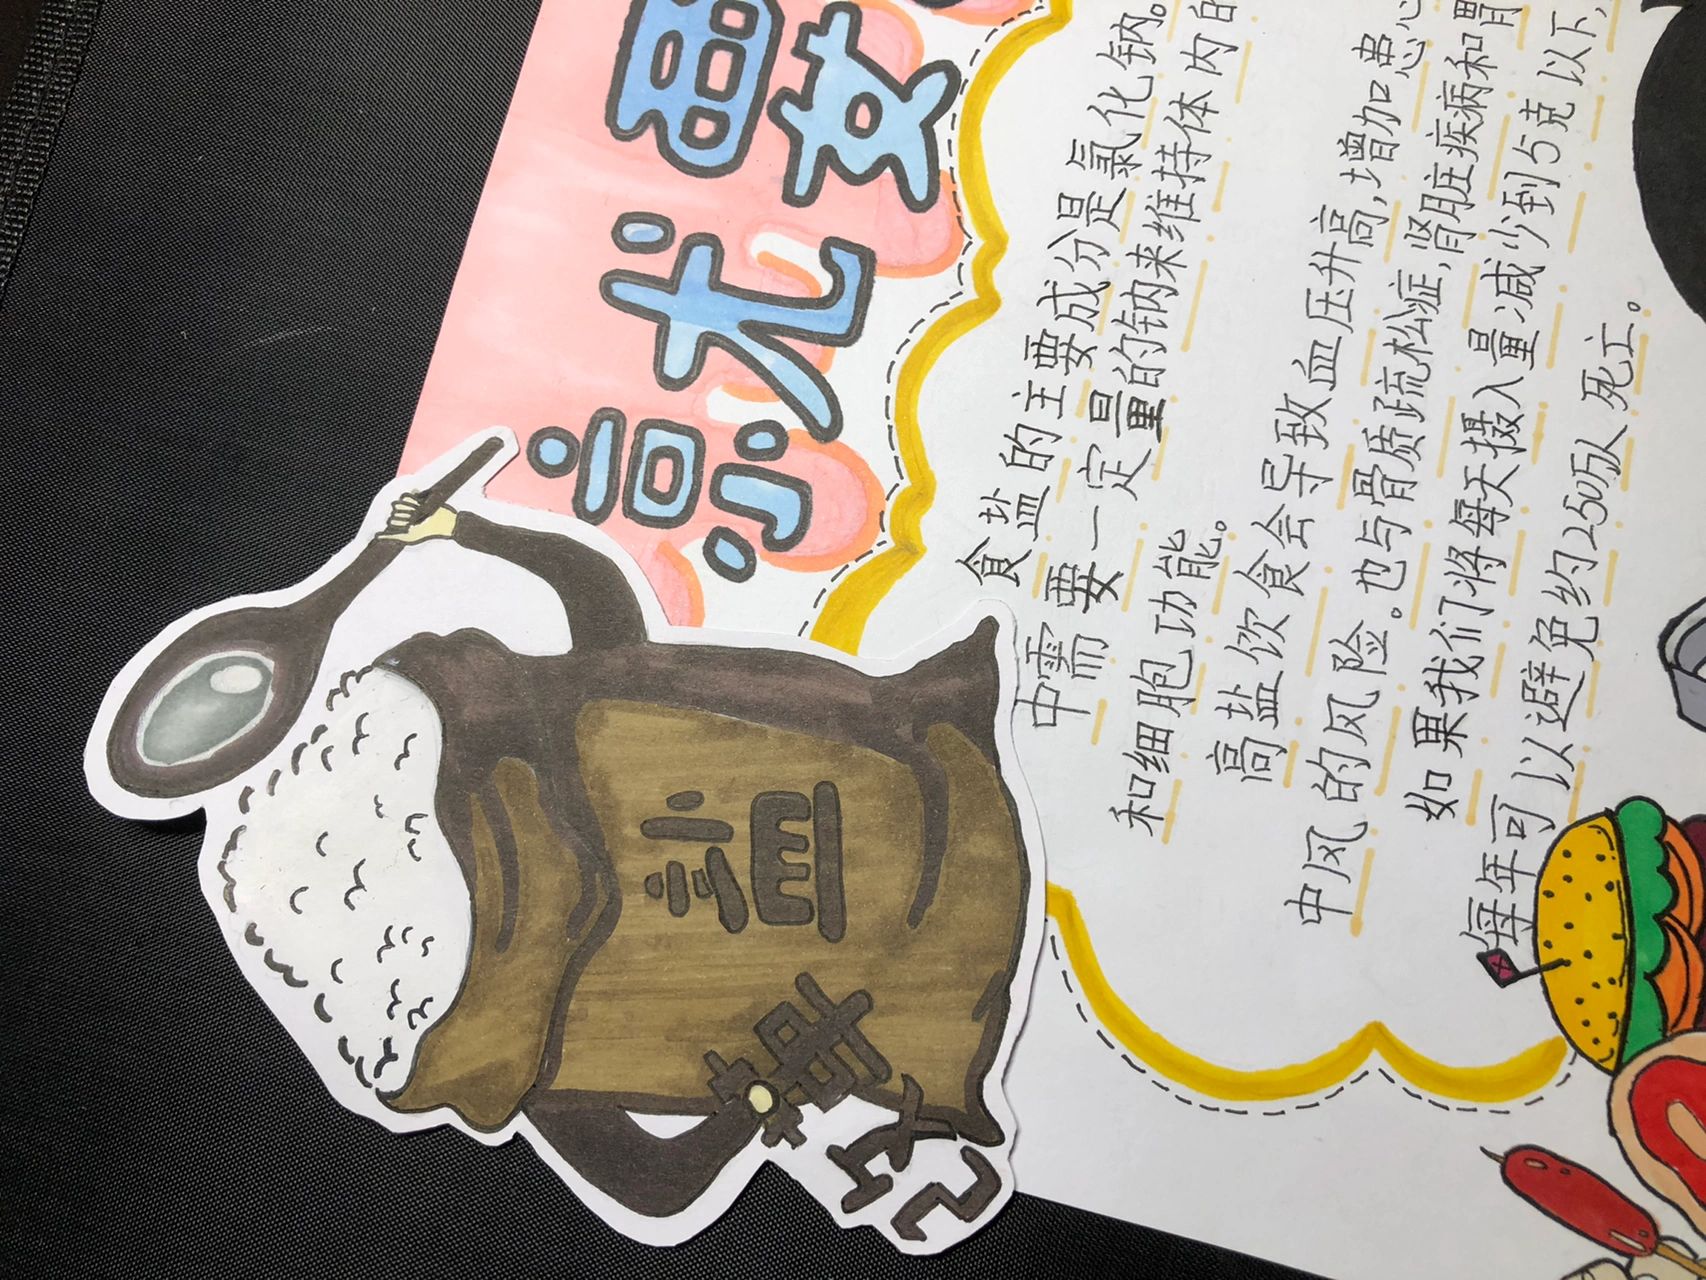 就要
食盐的主要成分是氯化钠。
中需要一定量的钠来维持体内
和细胞功能。
高盐饮食会导致血压升高,增加患
中风的风险。也与骨质疏松症,肾脏疾病和胃
如果我们将每天摄入量减少到5克以下,
每年可以避免约250万人死亡。
盐